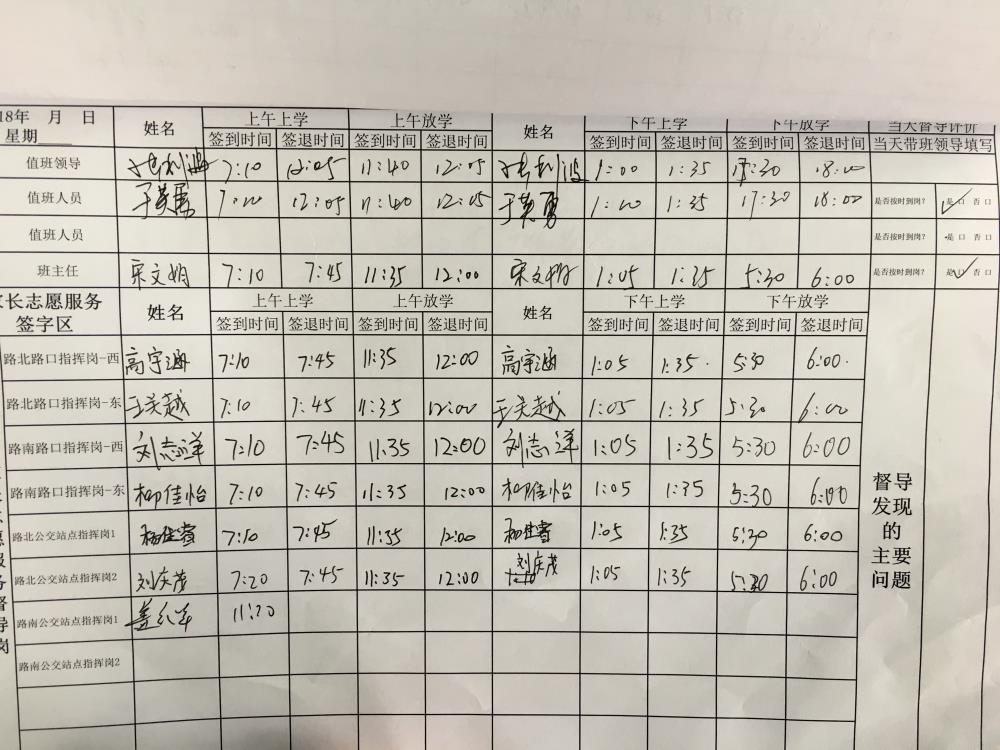 18年 月 日 姓名 上午上学 上午放学 姓名 下午上学 下午放学 当天督导评价
星期 签到时间 签退时间 签到时间 签退时间 签到时间 签退时间 签到时间 签退时间 当天带班领导填写
值班领导 7:10 12:05 11:40 12:05 1:00 1:35 17:30 18:00
值班人员 于英勇 7:10 12:05 11:40 12:05 于英勇 1:00 1:35 17:30 18:00 是否按时到岗? 是 否
值班人员 是否按时到岗? 是 否
班主任 宋文娟 7:10 7:45 11:35 12:00 宋文娟 1:05 1:35 5:30 6:00 是否按时到岗? 是 否
长志愿服务 姓名 上午上学 上午放学 姓名 下午上学 下午放学
签字区 签到时间 签退时间 签到时间 签退时间 签到时间 签退时间 签到时间 签退时间
路北路口指挥岗-西 高宇涵 7:10 7:45 11:35 12:00 高宇涵 1:05 1:35 5:30 6:00
路北路口指挥岗-东 王关越 7:10 7:45 11:35 12:00 王关越 1:05 1:35 5:30 6:00
路南路口指挥岗-西 刘志洋 7:10 7:45 11:35 12:00 刘志洋 1:05 1:35 5:30 6:00
路南路口指挥岗-东 柳佳怡 7:10 7:45 11:35 12:00 柳佳怡 1:05 1:35 5:30 6:00
路北公交站点指挥岗1 7:10 7:45 11:35 12:00 1:05 1:35 5:30 6:00
路北公交站点指挥岗2 刘庆茂 7:20 7:45 11:35 12:00 刘庆茂 1:05 1:35 5:30 6:00
路南公交站点指挥岗1 11:20
路南公交站点指挥岗2
督导
发现
的
主要
问题
愿服务督导岗